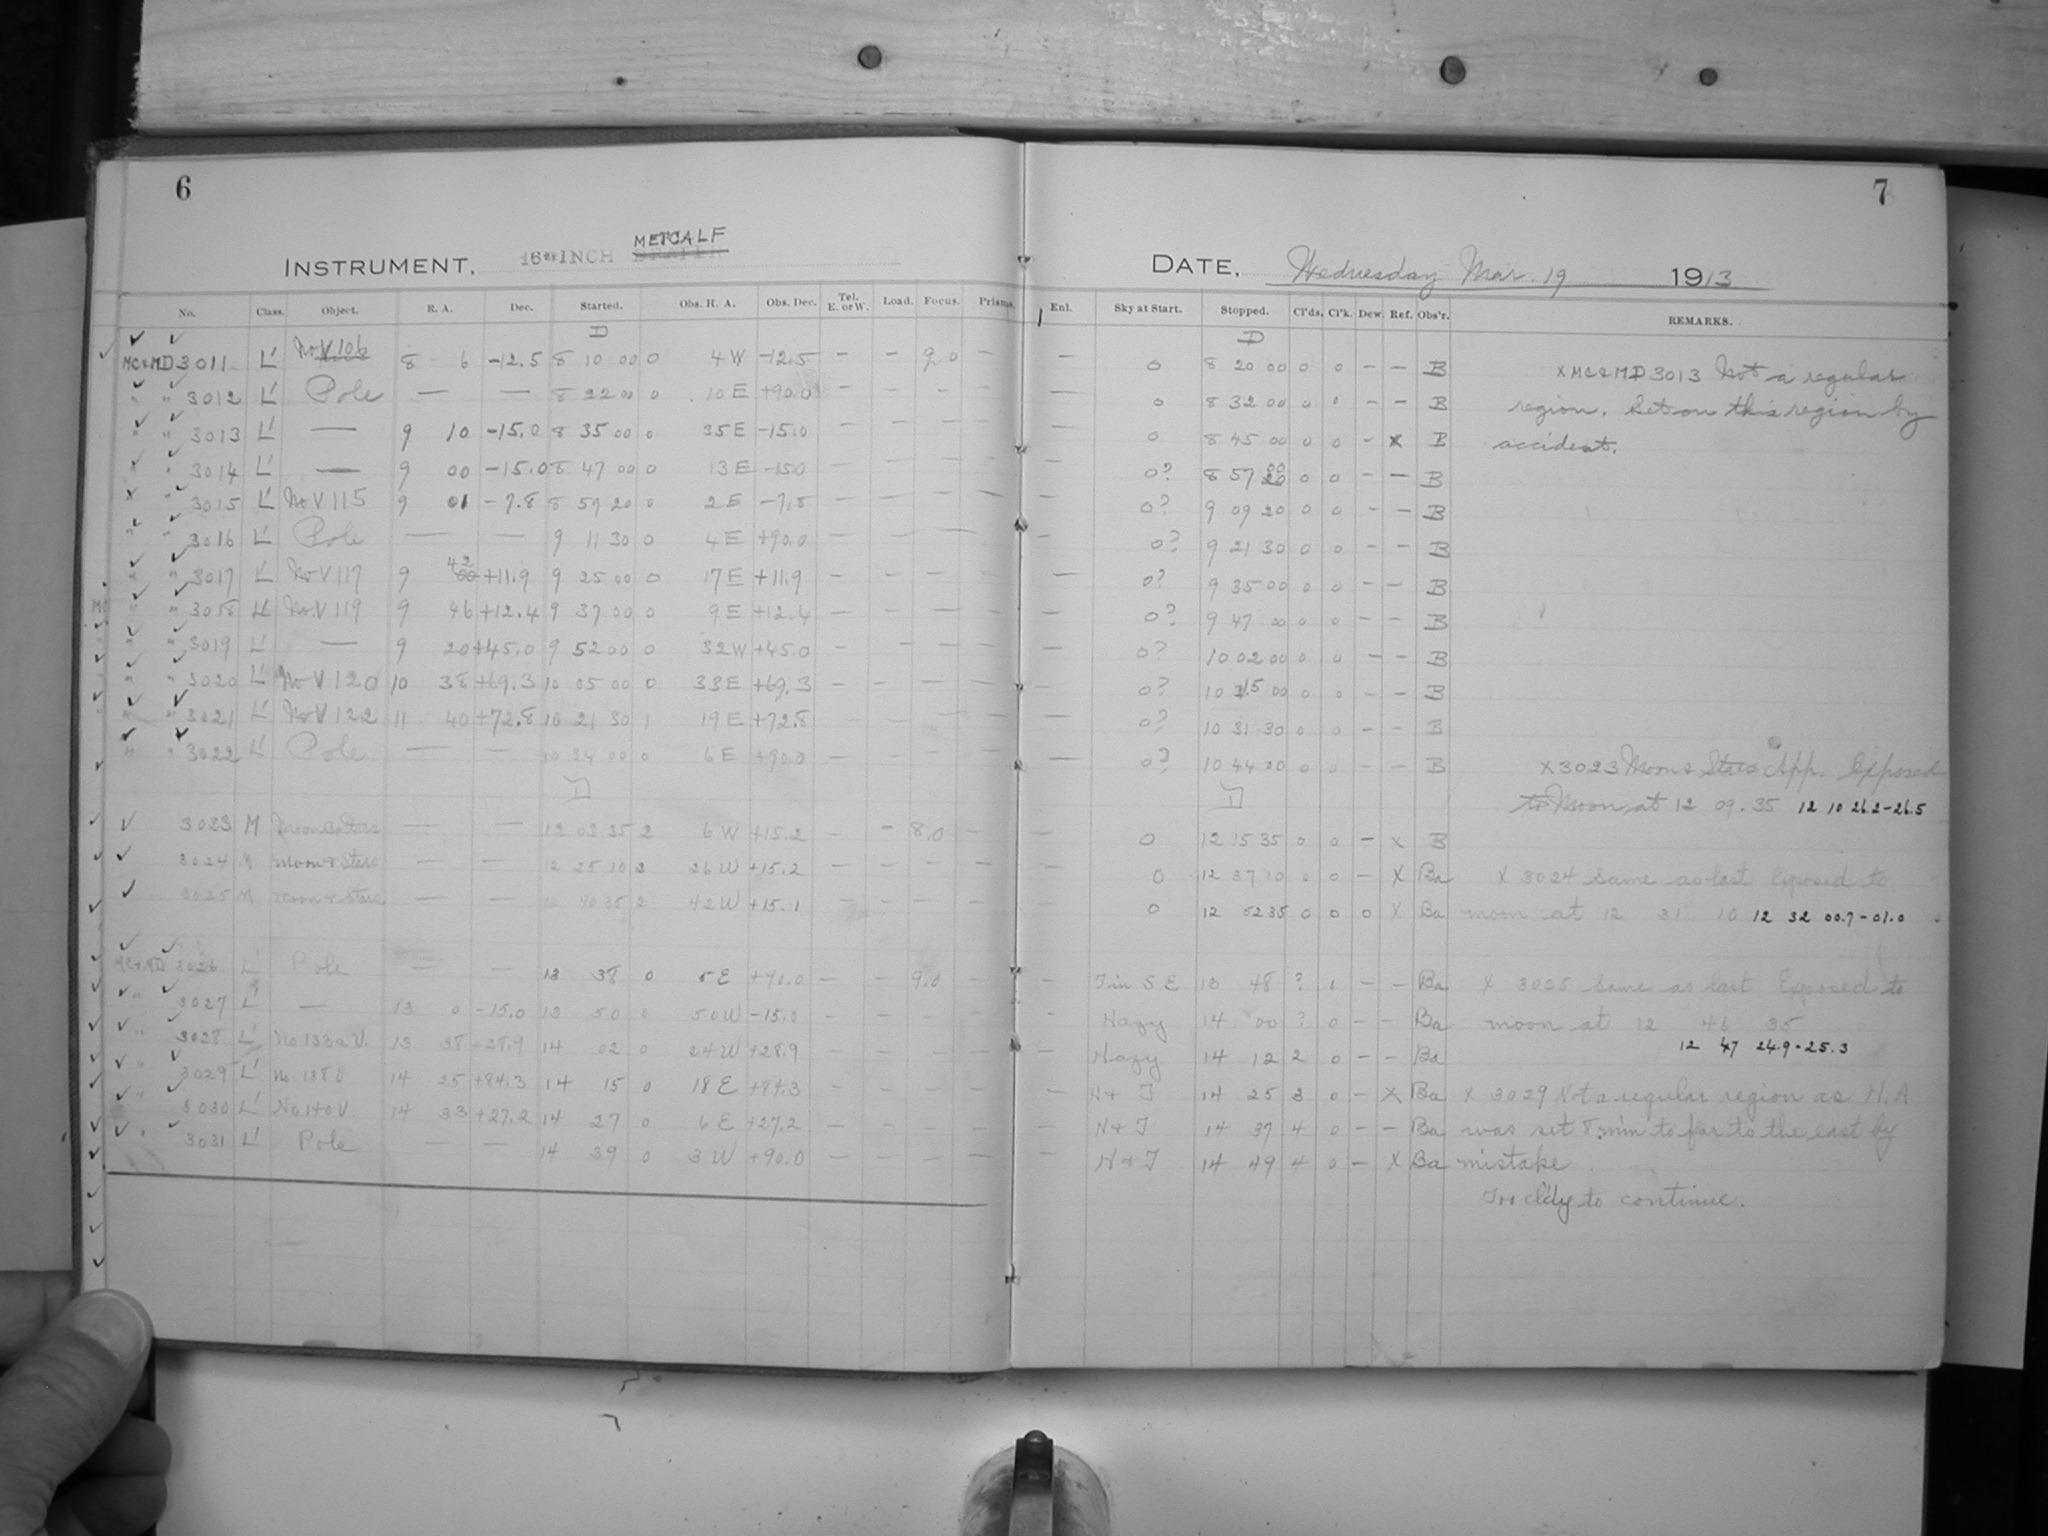 6
7
METCALF
INSTRUMENT, 16 INCH DRAPER
DATE, Wednesday Mar. 19 1913
No. Class. Object. R. A. Dec. Started. Obs. H. A. Obs. Dec. Tel. E. or W. Load. Focus. Prisms. Enl. Sky at Start. Stopped. Cl'ds. Cl'k. Dew. Ref. Obs'r. REMARKS.
D D
MC&MD 3011 L' No V 106 8 6 -12.5 8 10 00 0 4 W -12.5 — — 9.0 — — 0 8 20 00 0 0 — — B X MC&MD 3013 Not a regular
" " 3012 L' Pole — — 8 22 00 0 10 E +90.0 — — — — — 0 8 32 00 0 0 — — B region. Set on this region by
" " 3013 L' — 9 10 -15.0 8 35 00 0 35 E -15.0 — — — — — 0 8 45 00 0 0 — X B accident.
" " 3014 L' — 9 00 -15.0 8 47 00 0 13 E -15.0 — — — — — 0? 8 57 00 0 0 — — B
" " 3015 L' No V 115 9 01 -7.8 8 59 20 0 2 E -7.8 — — — — — 0? 9 09 20 0 0 — — B
" " 3016 L' Pole — — 9 11 30 0 4 E +90.0 — — — — — 0? 9 21 30 0 0 — — B
" " 3017 L' No V 117 9 42 +11.9 9 25 00 0 17 E +11.9 — — — — — 0? 9 35 00 0 0 — — B
" " 3018 L' No V 119 9 46 +12.4 9 37 00 0 9 E +12.4 — — — — — 0? 9 47 00 0 0 — — B
" " 3019 L' — 9 20 +45.0 9 52 00 0 32 W +45.0 — — — — — 0? 10 02 00 0 0 — — B
" " 3020 L' No V 120 10 38 +69.3 10 05 00 0 33 E +69.3 — — — — — 0? 10 15 00 0 0 — — B
" " 3021 L' No V 122 11 40 +72.8 10 21 30 1 19 E +72.8 — — — — — 0? 10 31 30 0 0 — — B
" " 3022 L' Pole — — 10 34 00 0 6 E +90.0 — — — — — 0? 10 44 00 0 0 — — B X 3023 Moon & Stars App. Exposed
D D to Moon at 12 09.35 12 10 26.2-26.5
3023 M Moon & Stars — — 12 03 35 2 6 W +15.2 — — 8.0 — — 0 12 15 35 0 0 — X B
3024 M Moon & Stars — — 12 25 10 2 26 W +15.2 — — — — — 0 12 37 10 0 0 — X Ba X 3024 Same as last Exposed to
3025 M Moon & Stars — — 12 40 35 2 42 W +15.1 — — — — — 0 12 52 35 0 0 0 X Ba moon at 12 31 10 12 32 00.7-01.0
MC&MD 3026 L' Pole — — 13 38 0 5 E +90.0 — — 9.0 — — T in S E 13 48 ? 0 — — Ba X 3025 Same as last Exposed to
" 3027 L' — 13 0 -15.0 13 50 0 50 W -15.0 — — — — — Hazy 14 00 ? 0 — — Ba moon at 12 46 35
" 3028 L' No 133a V. 13 38 +28.9 14 02 0 24 W +28.9 — — — — — Hazy 14 12 2 0 — — Ba 12 47 24.9-25.3
" 3029 L' No. 138 V 14 25 +84.3 14 15 0 18 E +84.3 — — — — — H & T 14 25 3 0 — X Ba X 3029 Not a regular region as H.A
" 3030 L' No 140 V. 14 33 +27.2 14 27 0 6 E +27.2 — — — — — H & T 14 37 4 0 — — Ba was set 8 min to far to the east by
" 3031 L' Pole — — 14 39 0 3 W +90.0 — — — — — H & T 14 49 4 0 — X Ba mistake.
Too cl'dy to continue.